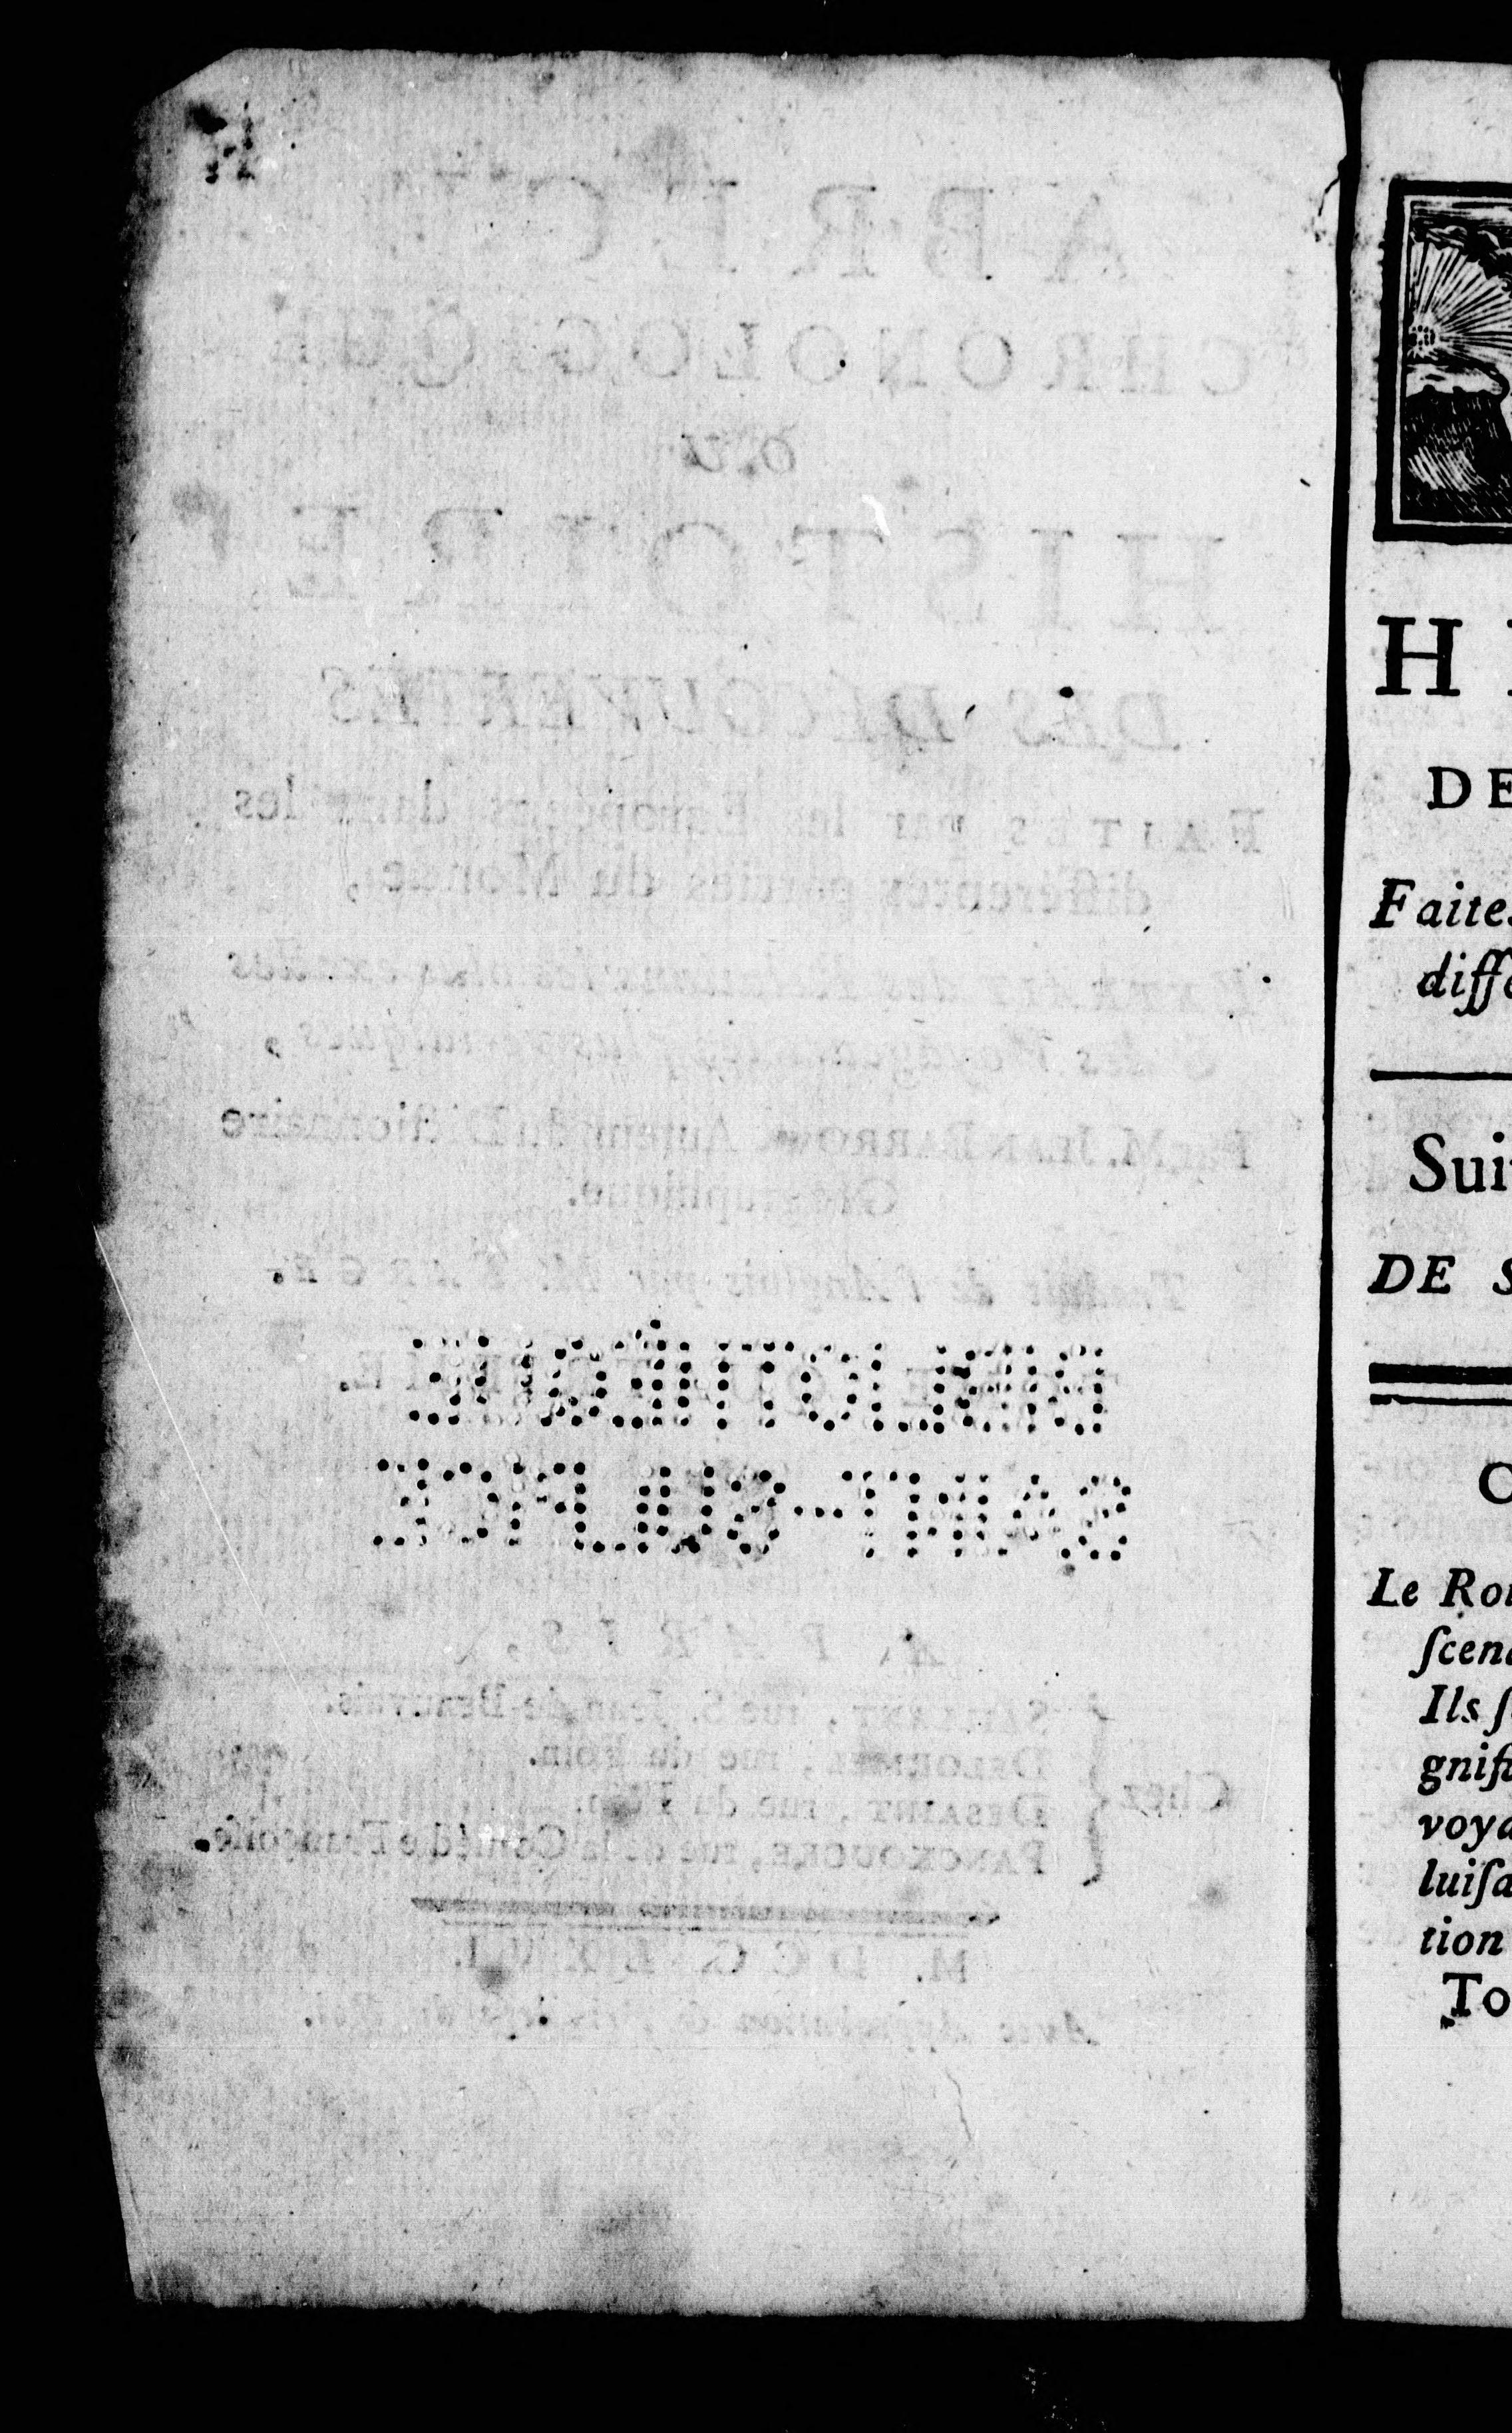 ABRÉGÉ
CHRONOLOGIQUE
ou
HISTOIRE
DES DÉCOUVERTES
FAITES par les Européens dans les
différentes parties du Monde,
& des Voyageurs
Par M. JEAN BARROW, Auteur du Dictionnaire
Géographique.
Traduit de l'Anglois par M. TARGE.
BIBLIOTHÈQUE
SAINT-SULPICE
A PARIS,
Chez
SAILLANT, rue S. Jean-de-Beauvais.
DELORMEL, rue du Foin.
DESAINT, rue du Foin.
PANCKOUCKE, rue de la Comédie Françoise.
M. DCC. LXVI.
Avec Approbation & Privilége du Roi.
H
DE
Faites
diffé
Sui
DE S
Le Roi
ſcen
Ils ſ
gnifi
voya
luiſa
tion
To